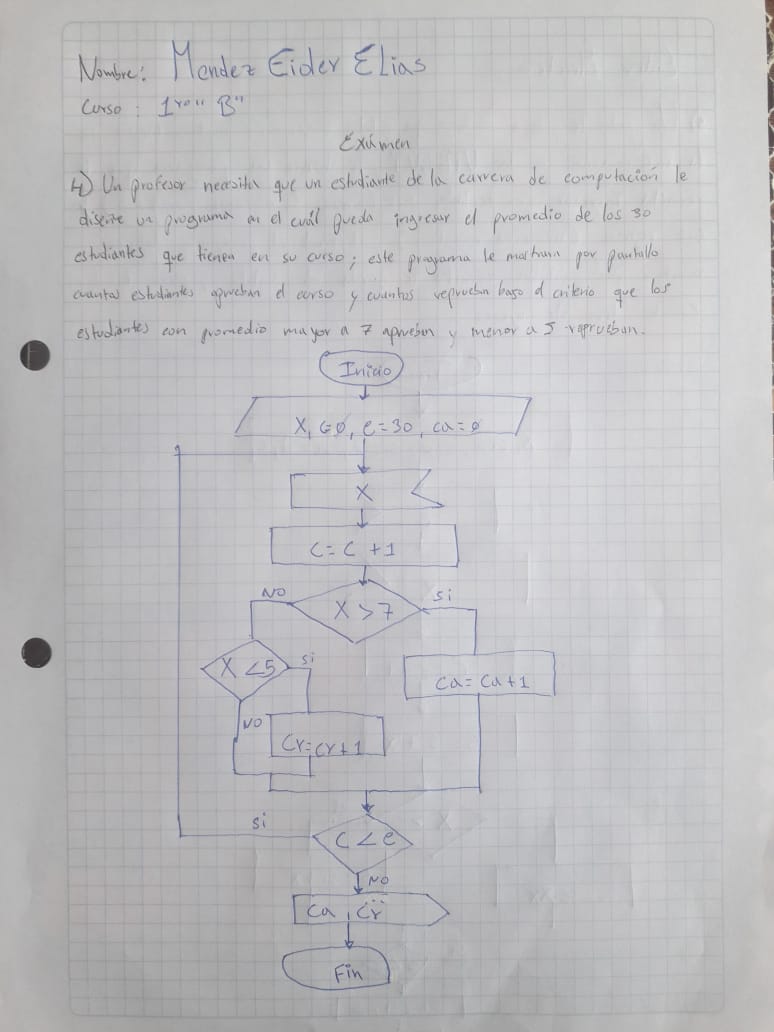 Nombre: Mendez Eider Elias
Curso : 1ro "B"
Exámen
4) Un profesor necesita que un estudiante de la carrera de computación le
diseñe un programa en el cuál pueda ingresar el promedio de los 30
estudiantes que tienen en su curso; este programa le mostrara por pantalla
cuantos estudiantes aprueban el curso y cuantos reprueban bajo el criterio que los
estudiantes con promedio mayor a 7 aprueban y menor a 5 reprueban.
Inicio
X, C=0, e=30, ca=0
X
C= C +1
NO
X > 7
si
X <5
si
Ca= Ca+1
NO
Cr=cr+1
si
C < e
NO
Ca, Cr
Fin